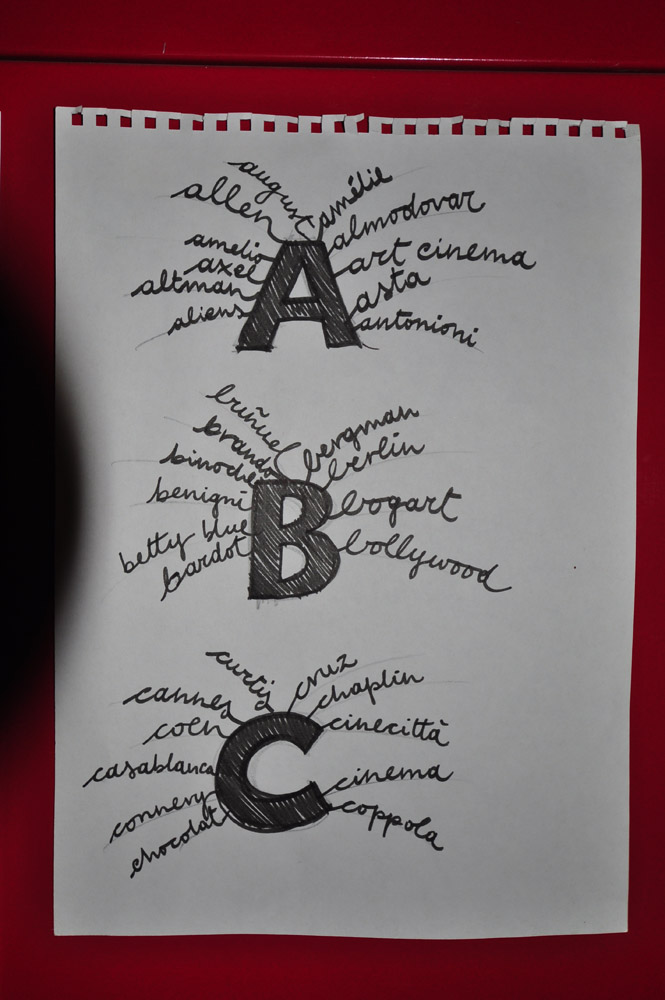 august
amélie
allen
almodovar
amelio
art cinema
axel
asta
altman
antonioni
aliens
A
buñuel
bergman
brando
berlin
binoche
bogart
benigni
bollywood
betty blue
bardot
B
curtiz
cruz
cannes
chaplin
coen
cinecittà
casablanca
cinema
connery
coppola
chocolat
C